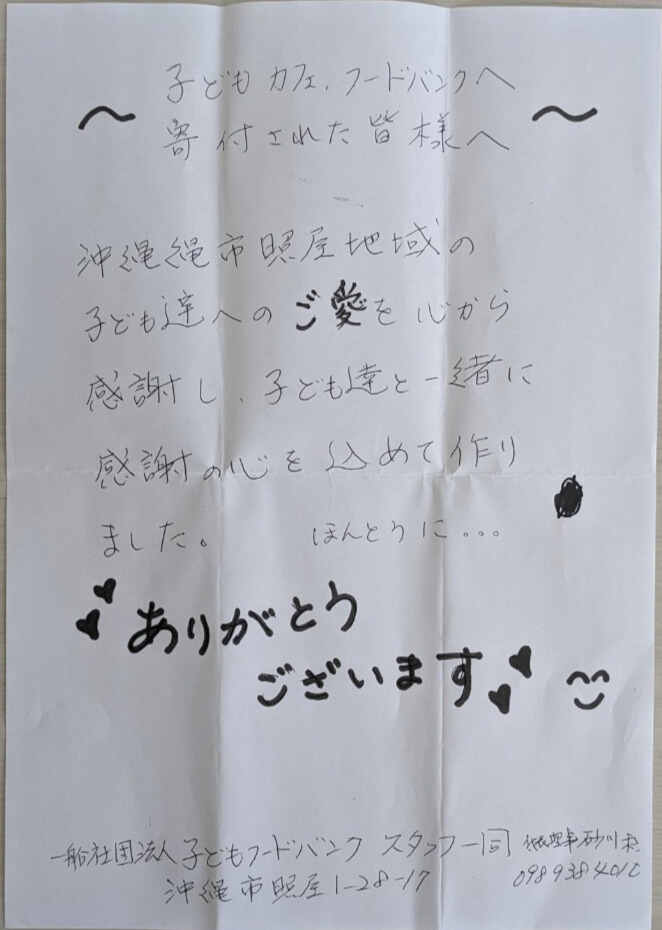 子どもカフェ、フードバンクへ
～ 寄付された皆様へ ～
沖縄縄市照屋地域の
子ども達へのご愛を心から
感謝し、子ども達と一緒に
感謝の心を込めて作り
ました。 ほんとうに...
ありがとう
ございます
一般社団法人子どもフードバンク スタッフ一同
沖縄市照屋1-28-17